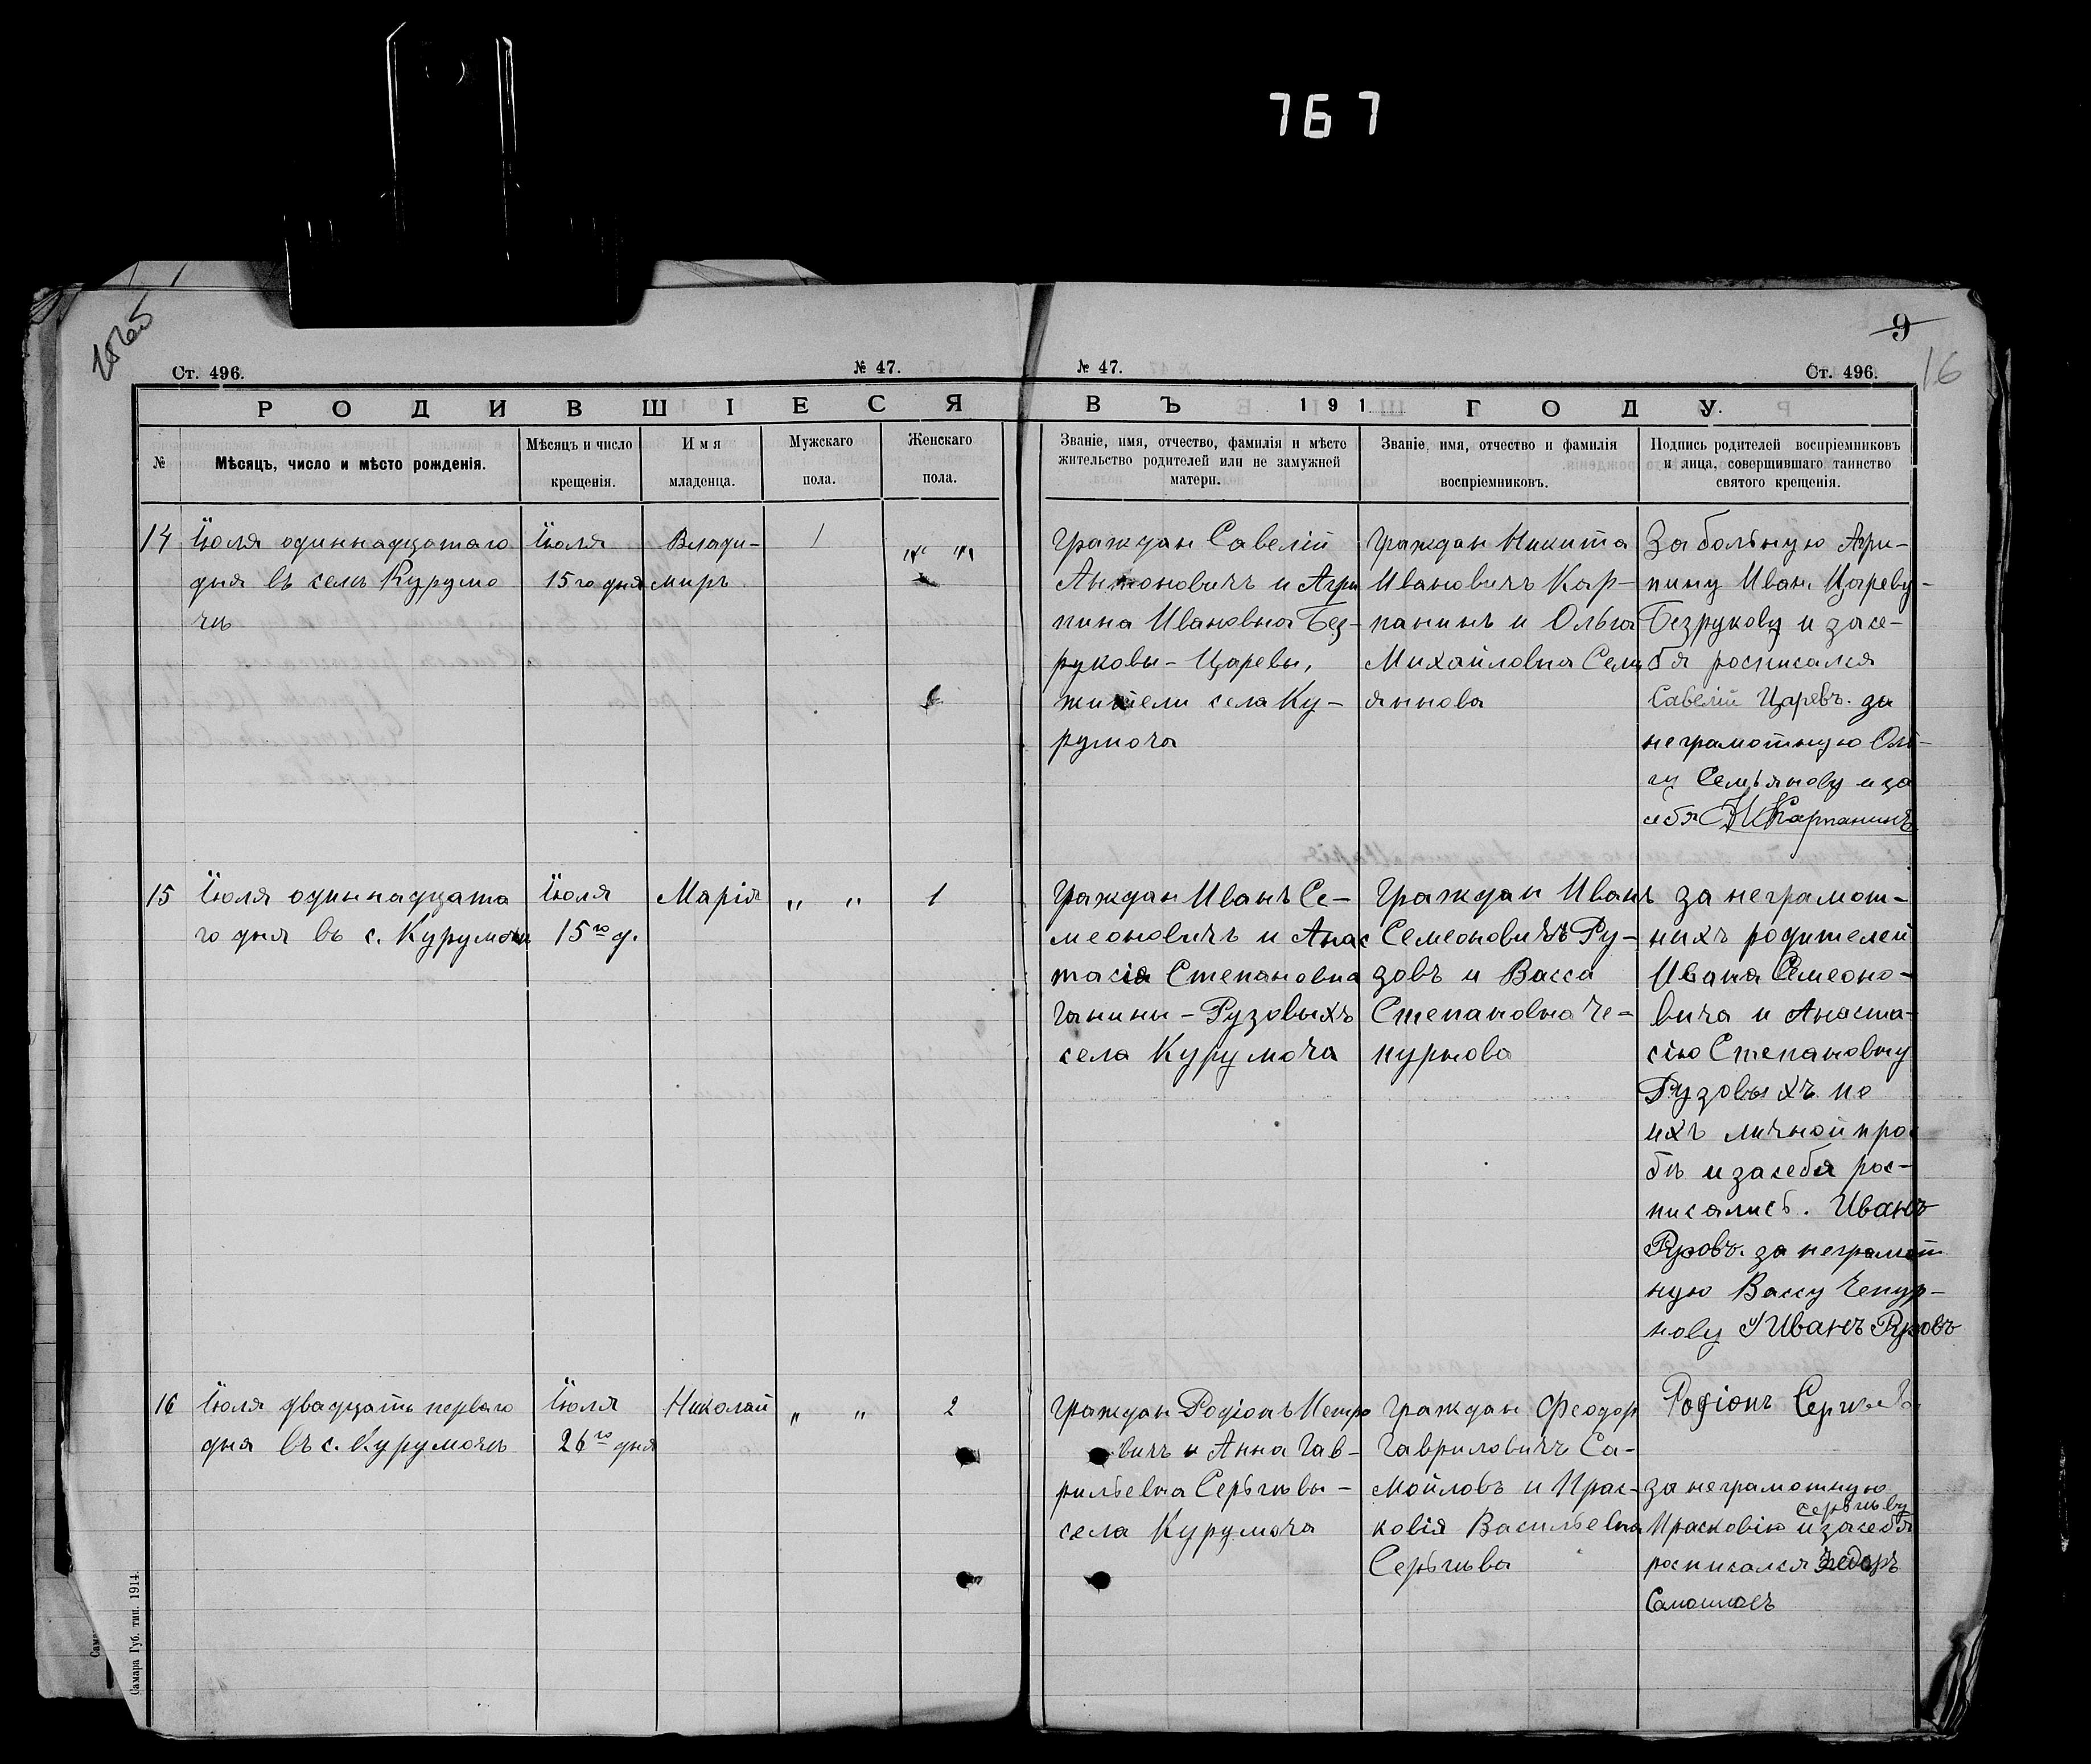 767
9
16
Ст. 496.
№ 47.
№ 47.
Ст. 496.
РОДИВШІЕСЯ
ВЪ 191 ГОДУ.
№
Мѣсяцъ, число и мѣсто рожденія.
Мѣсяцъ и число
крещенія.
Имя
младенца.
Мужскаго
пола.
Женскаго
пола.
Званіе, имя, отчество, фамилія и мѣсто
жительство родителей или не замужней
матери.
Званіе, имя, отчество и фамилія
воспріемниковъ.
Подпись родителей воспріемниковъ
и лица, совершившаго таинство
святого крещенія.
14
Іюля одиннадцатаго
дня въ селѣ Курумо
чѣ
Іюля
15го дня
Влади-
миръ
1
" "
Граждан Савелій
Антоновичъ и Агри
пина Ивановна Без-
руковы - Царевы,
жители села Ку-
румоча
Граждан Никита
Ивановичъ Кар-
панинъ и Ольга
Михайловна Семь
яннова
За больную Агри-
пину Иван. Цареву-
Безрукову и засе-
бя росписался
Савелій Царевъ. за
неграмотную Оль-
гу Семьянову и за
себя Н Карпанинъ
15
Іюля одиннадцата
го дня въ с. Курумочѣ
Іюля
15го д.
Марія
" "
1
Граждан Иванъ Се-
меоновичъ и Анас
тасія Степановна
Ганины - Рузовыхъ
села Курумоча
Граждан Иванъ
Семеоновичъ Ру-
зовъ и Васса
Степановна Че-
пурнова
за неграмот-
ныхъ родителей
Ивана Семеоно-
вича и Анаста-
сію Степановну
Рузовыхъ по
ихъ личной прос
бѣ и засебя рос-
писались. Иванъ
Рузовъ. за неграмот
ную Вассу Чепур-
нову Иванъ Рузовъ
16
Іюля двадцать перваго
дня въ с. Курумочѣ
Іюля
26го дня
Николай
" "
2
Граждан Родіонъ Петро
вичъ и Анна Гав-
рильевна Серьгѣвы-
села Курумоча
Граждан Феодор
Гавриловичъ Са-
мойловъ и Прас-
ковія Васильевна
Серьгѣва
Родіонъ
за неграмотную
Серьгѣву
Прасковію и засебя
росписался Федоръ
Самойловъ
Самара Губ. тип. 1914.